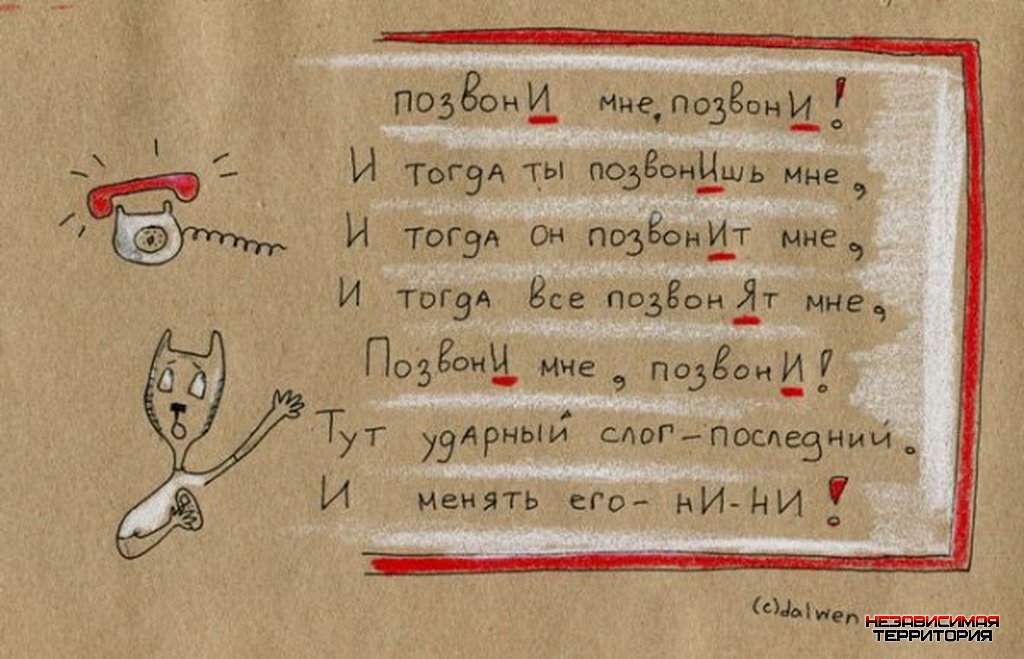 позвонИ мне, позвонИ!
И тогда ты позвонИшь мне,
И тогда он позвонИт мне,
И тогда все позвонЯт мне,
ПозвонИ мне, позвонИ!
Тут ударный слог-последний.
И менять его- нИ-НИ!
(c)dalwen
НЕЗАВИСИМАЯ
ТЕРРИТОРИЯ